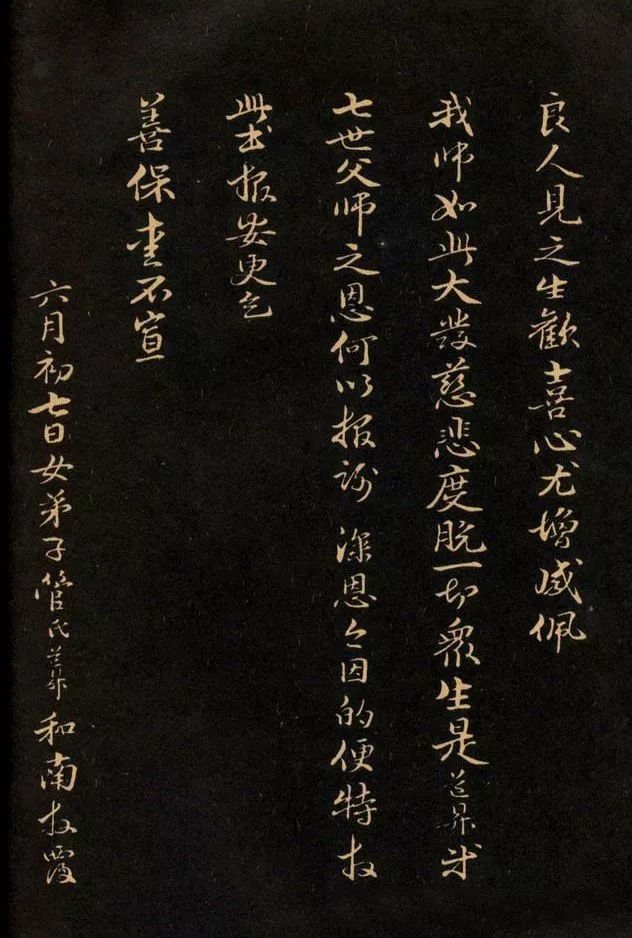 良人見之生歡喜心尤增感佩
我师如此大發慈悲度脱一切衆生是道昇
七世父师之恩何以报謝 深恩今因的便特拜
此書报安更乞
善保重不宣
六月初七日女弟子管氏道昇和南拜覆